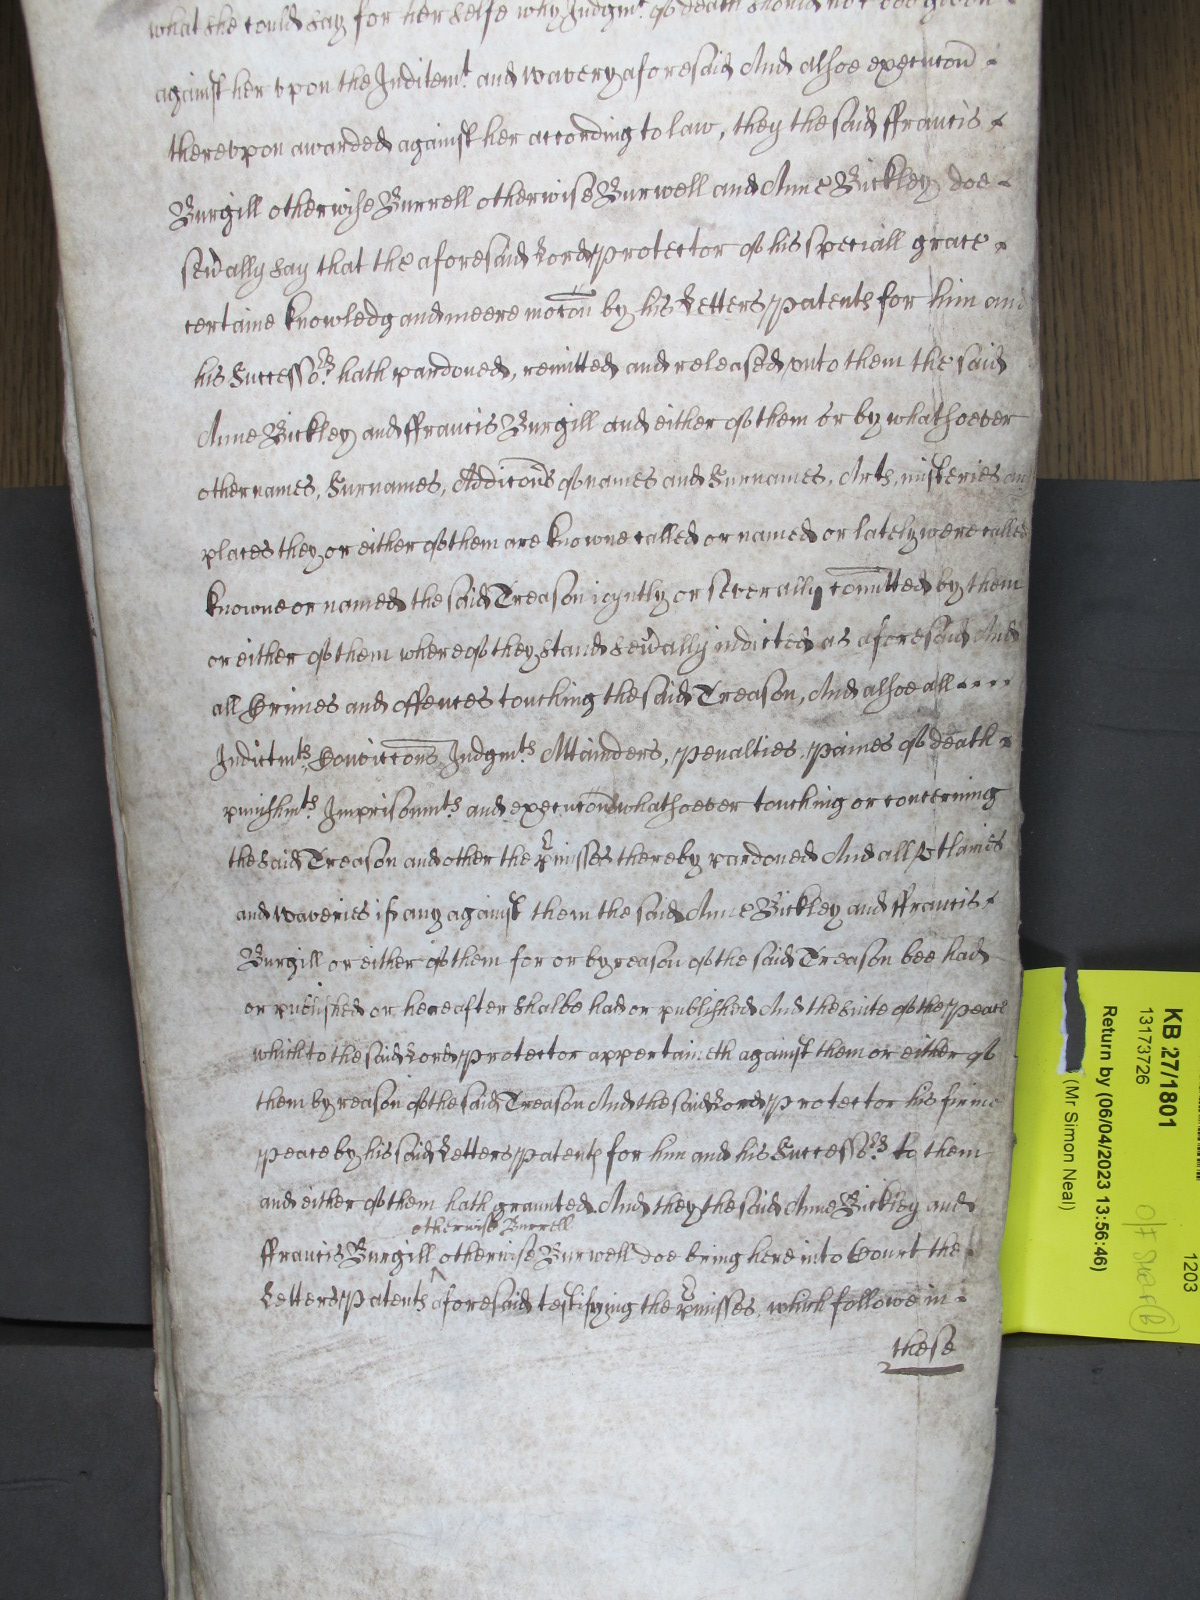 what she could say for her selfe why Judgmt. of death should not bee given
against her vpon the Inditemt. and wavery aforesaid And alsoe execucon
therevpon awarded against her according to law, they the said ffrancis
Burgill otherwise Burrell otherwise Burwell and Anne Bickley doe
sevally say that the aforesaid Lord Protector of his speciall grace
certaine knowledg and meere mocon by his Letters Patents for him and
his Successors. hath pardoned, remitted and released vnto them the said
Anne Bickley and ffrancis Burgill and either of them or by whatsoever
other names, Surnames, Addicons of names and Surnames, Arts, misteries and
places they or either of them are knowne called or named or lately were called
knowne or named the said Treason ioyntly or severally comitted by them
or either of them whereof they stand sevally indicted as aforesaid And
all Crimes and offences touching the said Treason, And alsoe all
Indictmts, Conviccons, Judgmts. Attainders, Penalties, Paines of death
punishmts. Imprisonmts and execucons whatsoever touching or concerning
the said Treason and other the pmisses thereby pardoned And all vtlaries
and waveries if any against them the said Anne Bickley and ffrancis
Burgill or either of them for or by reason of the said Treason bee had
or published or hereafter shalbe had or published And the suite of the Peace
which to the said Lord Protector appertaineth against them or either of
them by reason of the said Treason And the said Lord Protector his firme
peace by his said Letters Patents for him and his Successors. to them
and either of them hath graunted And they the said Anne Bickley and
otherwise Burrell
ffrancis Burgill ^ otherwise Burwell doe bring here into Court the
Letters Patents aforesaid testifying the pmisses, which followe in
these
KB 27/1801
13173726
Return by (06/04/2023 13:56:46)
(Mr Simon Neal)
1203